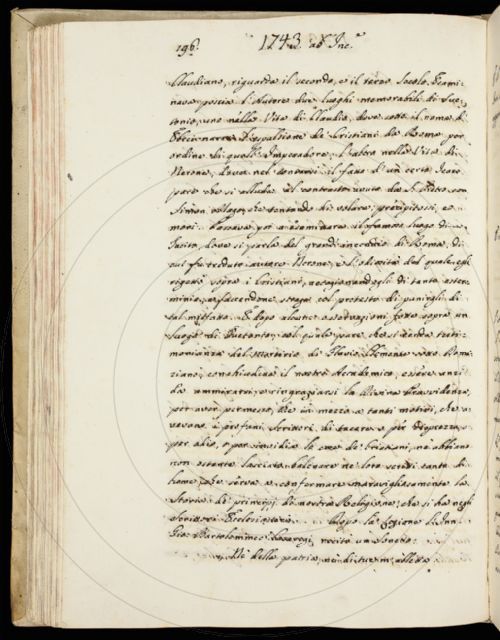 196. 1743 ab Inc.e
Claudiano, riguarda il secondo, e il terzo Secolo. Esami-
nava poscia l'Autore due luoghi memorabili di Sve-
tonio, uno nella Vita di Claudio, dove sotto il nome di
narra l'espulsione de' Cristiani da Roma per
ordine di quell'Imperadore; l'altro nella Vita di
Nerone, dove nel contarsi il fatto d'un certo Icaro
pare che si alluda al contrasto avuto da S. Pietro con
Simon Mago, che tentando di volare, precipitossi, e
morì. Passava poi a esaminare il famoso luogo di
Tacito, dove si parla del grand'incendio di Roma, di
cui fu creduto autore Nerone, e l'odiosità del quale egli
rigettò sopra i Cristiani, accagionandogli di tanto ester-
minio, e facendone strage col pretesto di punirgli di
tal misfatto. E dopo alcune osservazioni fatte sopra un
luogo di Suetonio, col quale pare che si renda testi-
monianza del Martirio di Flavio Clemente sotto Domi-
ziano, conchiudeva il nostro Accademico, essere anzi
da ammirarsi, e ringraziarsi la Divina Provvidenza,
per aver permesso, che in mezzo a tanti motivi, che a-
vevano i profani Scrittori di tacere o per disprezzo, o
per odio, o per invidia le cose de' Cristiani, ne abbiano
non ostante lasciato balenare ne' loro scritti tanto di
lume, che serva a confermare maravigliosamente la
Storia de' principj di nostra Religione, che si ha negli
Scrittori Ecclesiastici. Dopo la Lezione il Sig.
Gio. Bartolommeo Casaregi, recitò un Sonetto:
Nè della patria, nè di